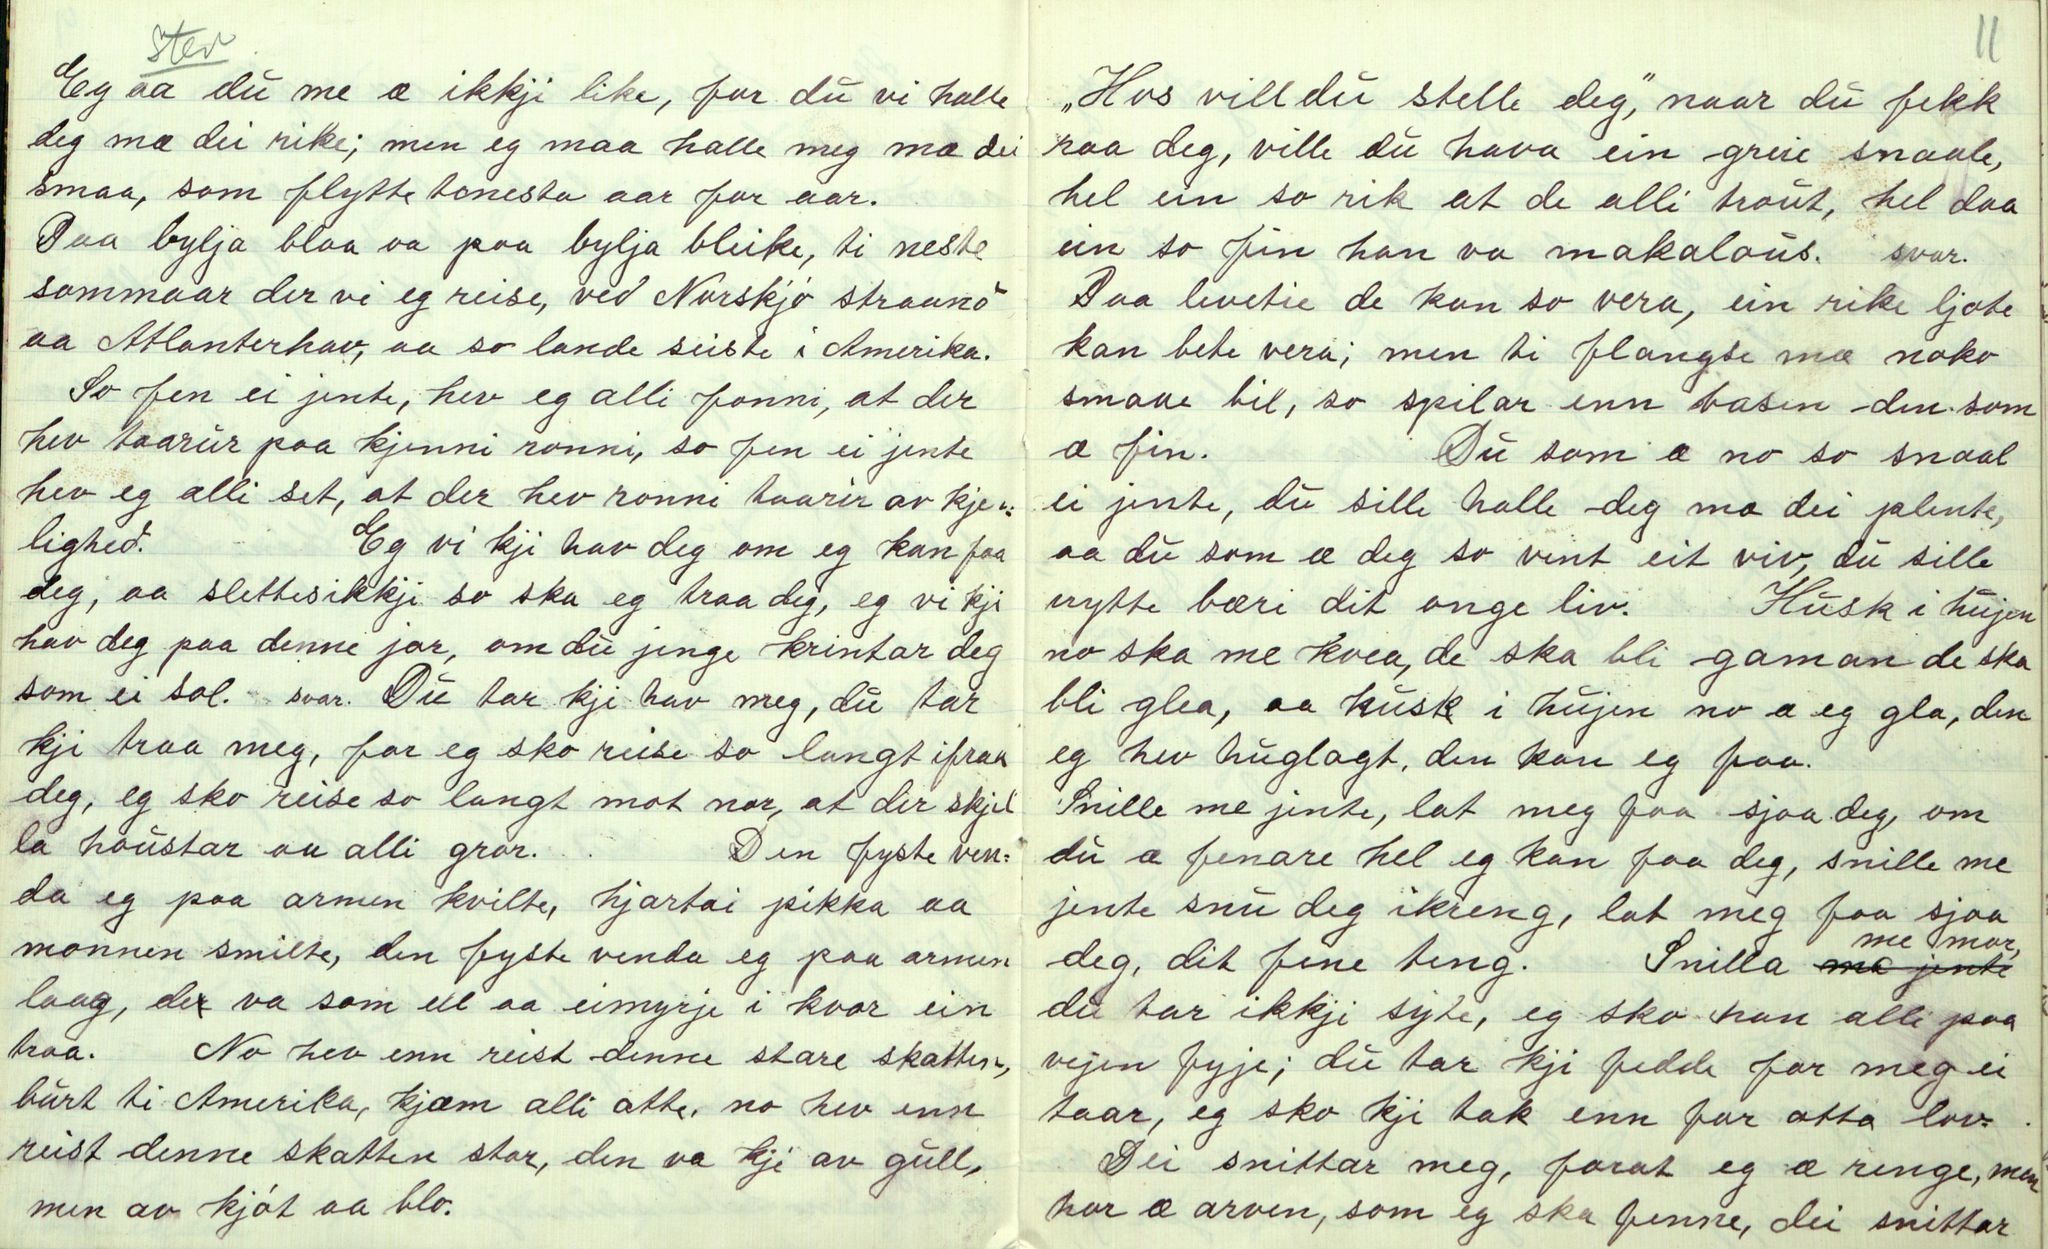 Stev
Eg aa dŭ me æ ikkji like, for dŭ vi halle
deg mæ dei rike; men eg maa halle meg mæ dei
smaa, som flytte tonesta aar for aar.
Paa bylja blaa aa paa bylja bleike, ti neste
sommaar der vi eg reise, ved Norskjó straanó
aa Atlanterhav, aa so lande seiste i Amerika.
So fen ei jente, hev eg alli fonni, at der
hev taarŭr paa kjenni ronni, so fen ei jente
hev eg alli set, at der hev ronni taarir av kje=
lighed. Eg vi kji hav deg om eg kan faa
deg, aa slettesikkji so ska eg traa deg, eg vi kji
hav deg paa denne jor, om dŭ jenge krintar deg
som ei sol. svar. Dŭ tar kji hav meg, dŭ tar
kji traa meg, for eg sko reise so langt ifraa
deg, eg sko reise so langt mot nor, at der skjel
la haŭstar aa alli gror. Den fyste ven=
da eg paa armen kvilte, hjartai pikka aa
monnen smilte, den fyste venda eg paa armen
laag, der va som ell aa eimyrje i kvar ein
traa. No hev enn reist denne store skatten,
bŭrt ti Amerika, kjæm alli atte. no hev enn
reist denne skatten stor, den va kji av gŭll,
men av kjót aa blo.
11
"Hos vill dŭ stelle deg," naar dŭ fekk
raa deg, ville dŭ hava ein greie snaale,
hel ein so rik at de alli traŭt, hel daa
ein so fin han va makalaŭs. svar.
Paa levetie de kan so vera, ein rike ljote
kan bete vera; men ti flangse mæ noko
smaae bil, so spilar enn basen den som
æ fin. Dŭ som æ no so snaal
ei jente, dŭ sille halle deg mæ dei plente,
aa dŭ som æ deg so vent eit viv, dŭ sille
nytte bæri dit onge liv. Hŭsk i hŭjen
no ska me kvea, de ska bli gaman de ska
bli glea, aa hŭsk i hŭjen no æ eg gla, den
eg hev hŭglagt, den kan eg faa.
Snille me jente, lat meg faa sjaa deg, om
dŭ æ fenare hel eg kan faa deg, snille me
jente snŭ deg ikreng, lat meg faa sjaa
deg, dit fene teng. Snilla me mor,
dŭ tar ikkji syte, eg sko han alli paa
vejen fyje; dŭ tar kji fedde for meg ei
taar, eg sko kji tak enn for atta lov.
Dei snittar meg, forat eg æ renge, men
hor æ arven, som eg ska fenne, dei snittar